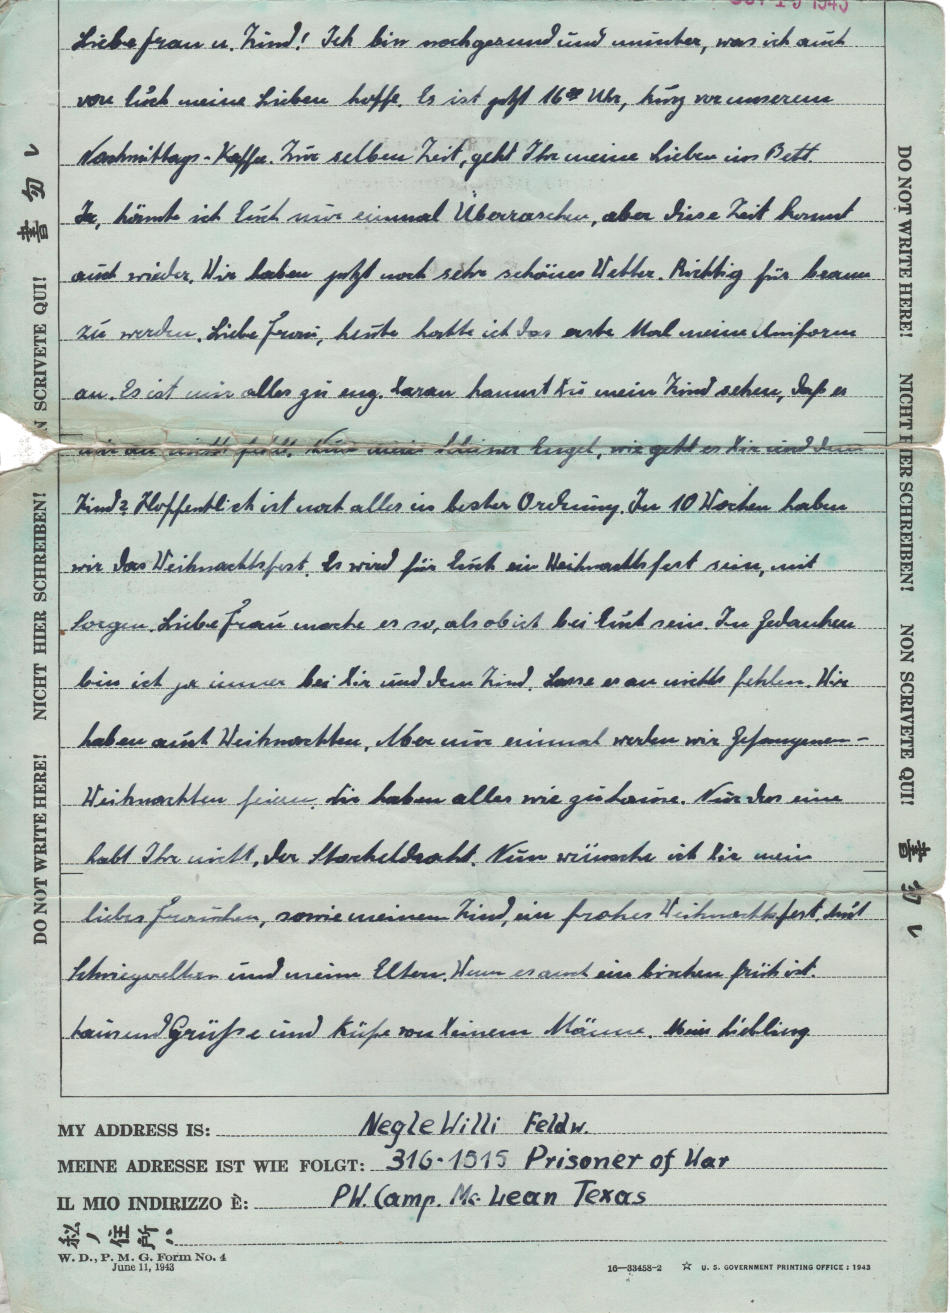 OCT 15 1943
Liebe Frau u. Kind! Ich bin noch gesund und munter, was ich auch
von Euch meine Lieben hoffe. Es ist jetzt 16 Uhr, kurz vor unserem
Nachmittags-Kaffee. Zur selben Zeit, geht Ihr meine Lieben ins Bett.
Ja, könnte ich Euch nur einmal Überraschen, aber diese Zeit kommt
auch wieder. Wir haben jetzt noch sehr schönes Wetter. Richtig für braun
zu werden. Liebe Frau, heute hatte ich das erste Mal meine Uniform
an. Es ist mir alles zu eng. Daran kannst Du mein Kind sehen, daß es
mir an nichts fehlt. Nun mein kleiner Engel, wie geht es Dir und dem
Kind? Hoffentlich ist noch alles in bester Ordnung. In 10 Wochen haben
wir das Weihnachtsfest. Es wird für Euch ein Weihnachtsfest sein, mit
Sorgen. Liebe Frau mache es so, als ob ich bei Euch sein. In Gedanken
bin ich ja immer bei Dir und dem Kind. Lasse es an nichts fehlen. Wir
haben auch Weihnachten. Aber nur einmal werden wir Gefangenen-
Weihnachten feiern. Wir haben alles wie zuhause. Nur das eine
habt Ihr nicht, der Stacheldraht. Nun wünsche ich Dir mein
liebes Frauchen, sowie meinem Kind, ein frohes Weihnachtsfest. Auch
Schwiegereltern und meine Eltern. Wenn es auch ein bischen früh ist.
tausend Grüße und Küße von Deinem Männe. Mein Liebling
DO NOT WRITE HERE! NICHT HIER SCHREIBEN! N SCRIVETE QUI! 書勿レ
DO NOT WRITE HERE! NICHT HIER SCHREIBEN! NON SCRIVETE QUI! 書勿レ
MY ADDRESS IS: Negle Willi Feldw.
MEINE ADRESSE IST WIE FOLGT: 316-1515 Prisoner of War
IL MIO INDIRIZZO È: PW. Camp. Mc Lean Texas
私ノ住所ハ
W. D., P. M. G. Form No. 4
June 11, 1943
16—33458-2 ☆ U. S. GOVERNMENT PRINTING OFFICE : 1943